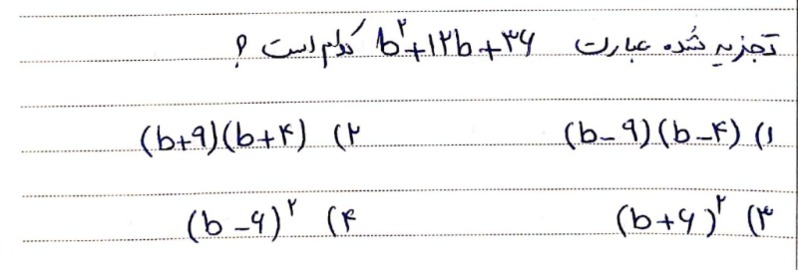 تجزیه شده عبارت b²+۱۲b+۳۶ کدام است ؟
۱) (b-۹)(b-۴) ۲) (b+۹)(b+۴)
۳) (b+۶)² ۴) (b-۶)²